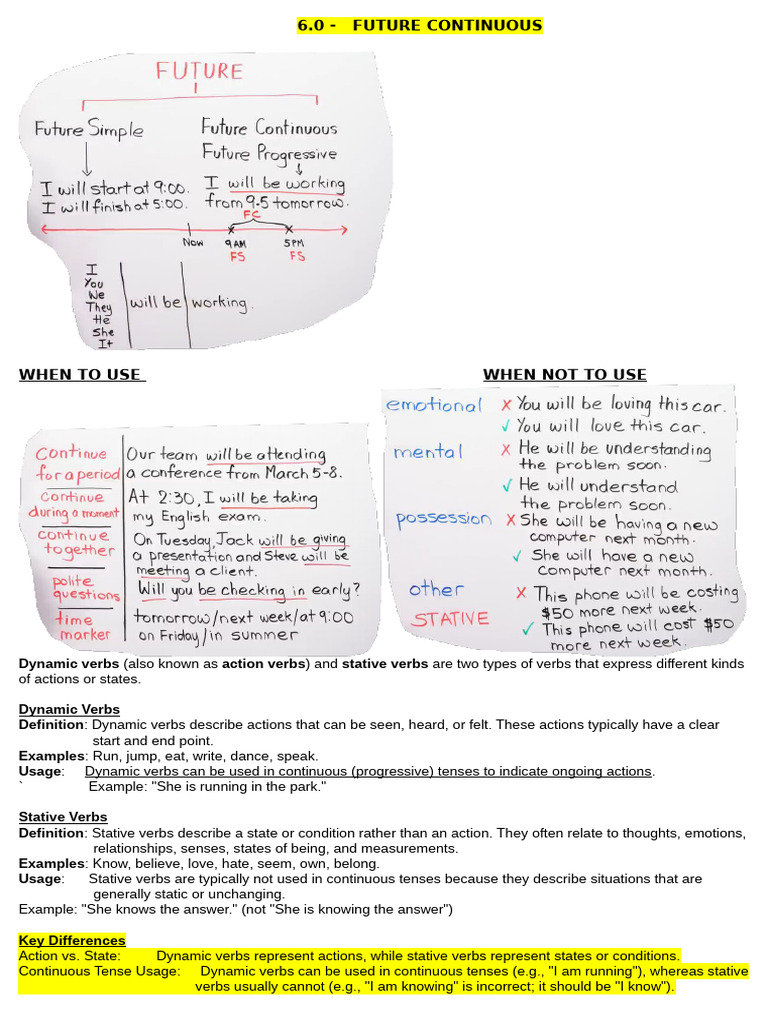 6.0 -   FUTURE CONTINUOUS
FUTURE
Future Simple
Future Continuous
Future Progressive
I will start at 9:00.
I will finish at 5:00.
I will be working
from 9-5 tomorrow.
FC
Now
9AM
5PM
FS
FS
I
You
We
They
He
She
It
will be
working.
WHEN TO USE
Continue
for a period
Our team will be attending
a conference from March 5-8.
continue
during a moment
At 2:30, I will be taking
my English exam.
continue
together
On Tuesday, Jack will be giving
a presentation and Steve will be
meeting a client.
polite
questions
Will you be checking in early?
time
marker
tomorrow/next week/at 9:00
on Friday/in summer
WHEN NOT TO USE
emotional
X You will be loving this car.
✓ You will love this car.
mental
X He will be understanding
the problem soon.
✓ He will understand
the problem soon.
possession
X She will be having a new
computer next month.
✓ She will have a new
computer next month.
other
STATIVE
X This phone will be costing
$50 more next week.
✓ This phone will cost $50
more next week.
Dynamic verbs (also known as action verbs) and stative verbs are two types of verbs that express different kinds
of actions or states.
Dynamic Verbs
Definition: Dynamic verbs describe actions that can be seen, heard, or felt. These actions typically have a clear
start and end point.
Examples: Run, jump, eat, write, dance, speak.
Usage: Dynamic verbs can be used in continuous (progressive) tenses to indicate ongoing actions.
` Example: "She is running in the park."
Stative Verbs
Definition: Stative verbs describe a state or condition rather than an action. They often relate to thoughts, emotions,
relationships, senses, states of being, and measurements.
Examples: Know, believe, love, hate, seem, own, belong.
Usage: Stative verbs are typically not used in continuous tenses because they describe situations that are
generally static or unchanging.
Example: "She knows the answer." (not "She is knowing the answer")
Key Differences
Action vs. State: Dynamic verbs represent actions, while stative verbs represent states or conditions.
Continuous Tense Usage: Dynamic verbs can be used in continuous tenses (e.g., "I am running"), whereas stative
verbs usually cannot (e.g., "I am knowing" is incorrect; it should be "I know").